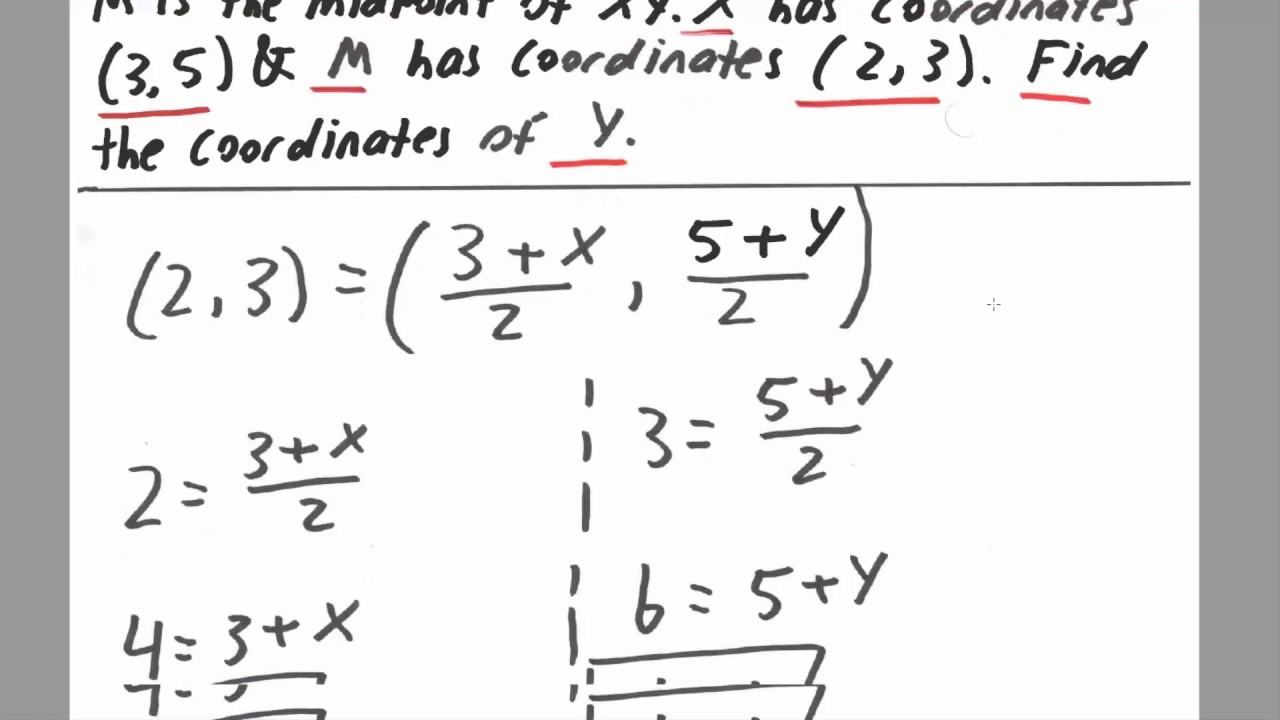 M is the midpoint of XY. X has coordinates
(3,5) & M has coordinates (2,3). Find
the coordinates of Y.
(2,3) = ( 3+x/2 , 5+y/2 )
2 = 3+x/2
3 = 5+y/2
4 = 3+x
6 = 5+y